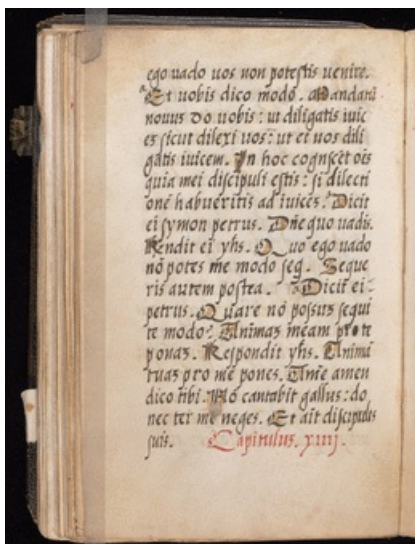 ego uado uos non potestis uenire.
Et uobis dico modo. Mandatū
nouus do uobis: ut diligatis iuic
es sicut dilexi uos: ut et uos dili
gatis iuicem. In hoc cognscēt oīs
quia mei discipuli estis: si dilecti
onē habueritis ad iuicēs. Dicit
ei symon petrus. Dñe quo uadis.
Rendit ei yhs. Quo ego uado
nō potes me modo seq. Seque
ris autem postea. Dicit ei
petrus. Quare nō possus sequi
te modo? Animaʒ meam pro te
ponaʒ. Respondit yhs. Animā
tuaʒ pro me pones. Amē amen
dico tibi. Nō cantabit gallus: do
nec ter me neges. Et ait discipulis
suis. Capitulus. xiiij.